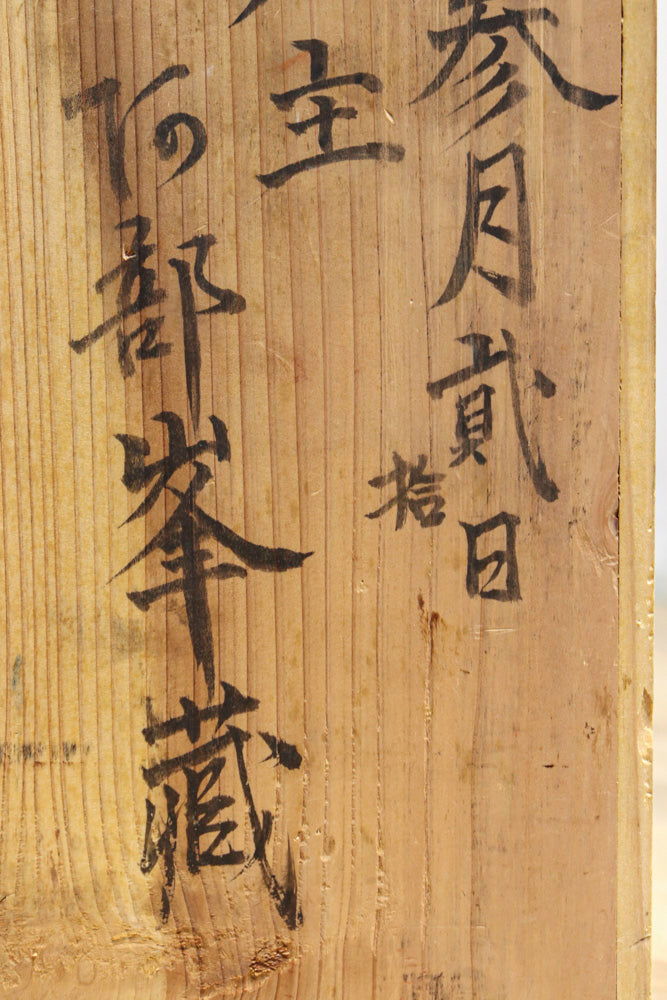 参月貳拾日
主
阿部峯藏